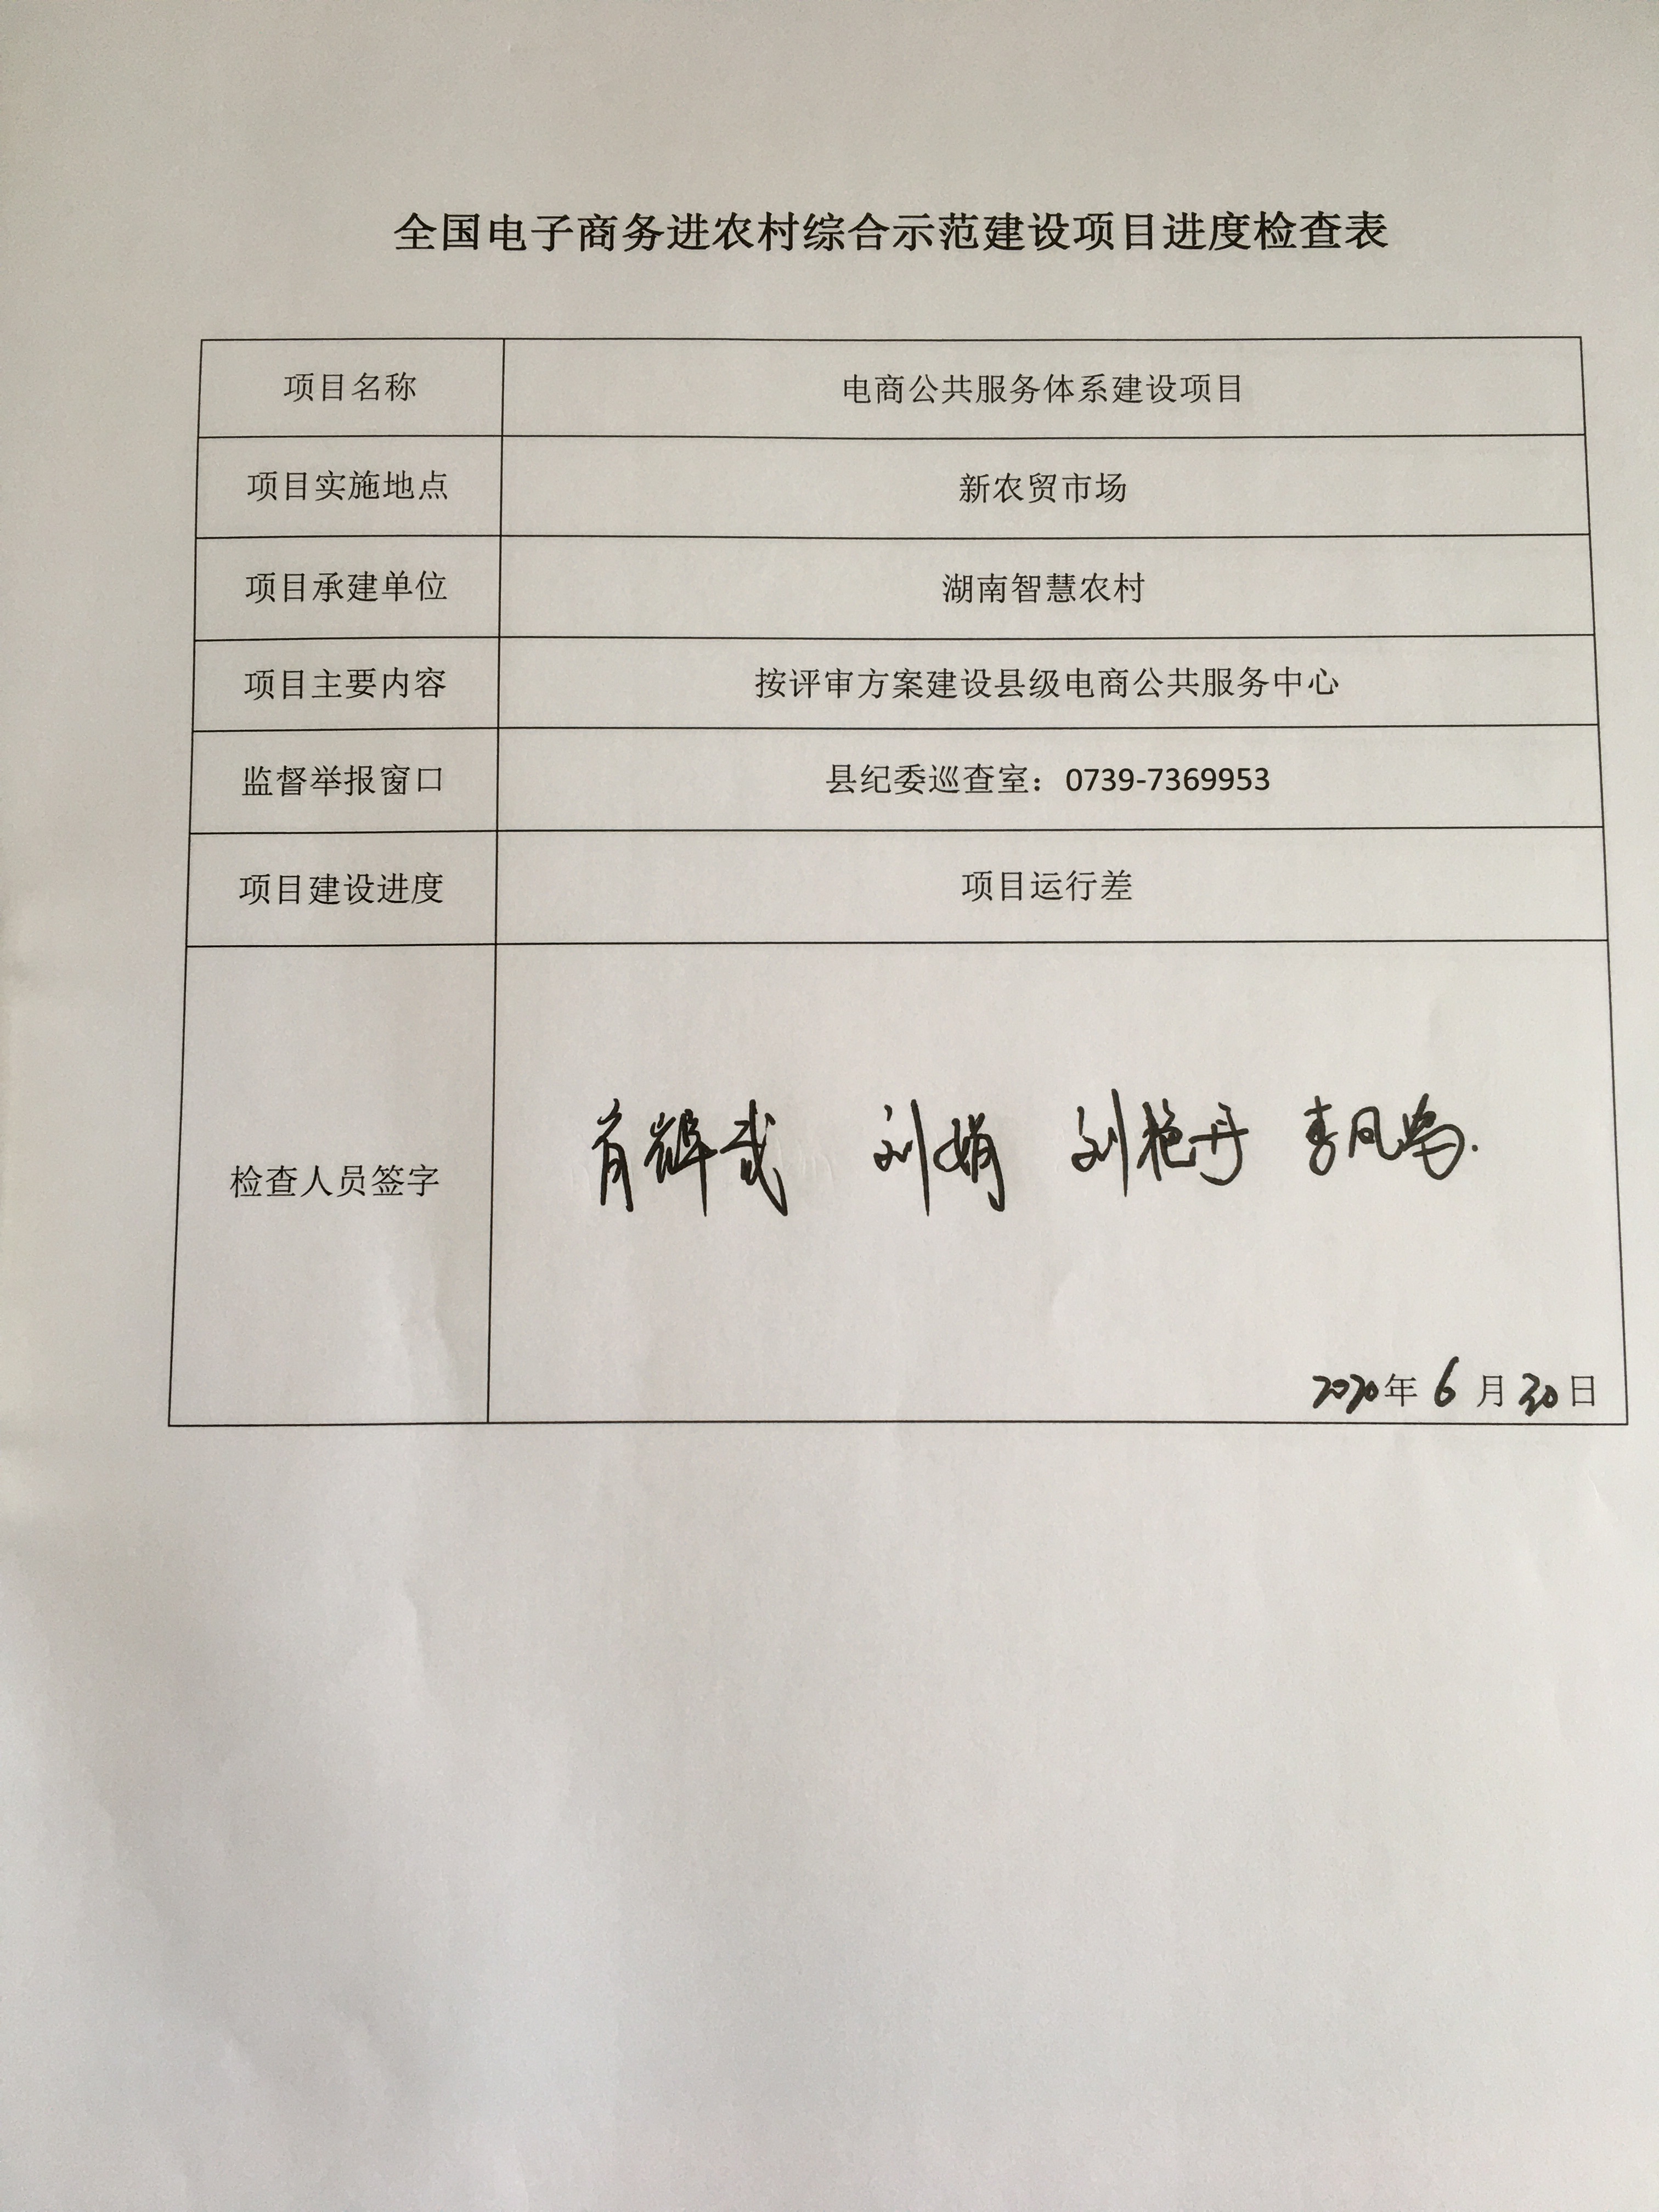 全国电子商务进农村综合示范建设项目进度检查表
项目名称 电商公共服务体系建设项目
项目实施地点 新农贸市场
项目承建单位 湖南智慧农村
项目主要内容 按评审方案建设县级电商公共服务中心
监督举报窗口 县纪委巡查室：0739-7369953
项目建设进度 项目运行差
检查人员签字 刘娟 刘艳丹
2020年6月30日